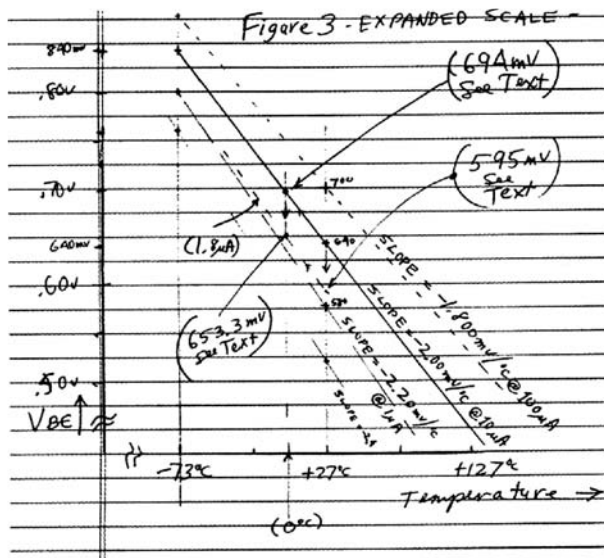 Figure 3 - EXPANDED SCALE -
840mv
.80v
(694mV
See Text)
(595mv
see
Text)
.70v
700
640mv
(1.8µA)
640
.60v
580
(653.3mv
see Text)
SLOPE = -1.800mv/°C @ 100µA
SLOPE = -2.00mv/°C @ 10µA
SLOPE = -2.20mv/°C
@ 1µA
SLOPE =
.50v
VBE
-73°C
+27°C
+127°C
Temperature →
(0°C)